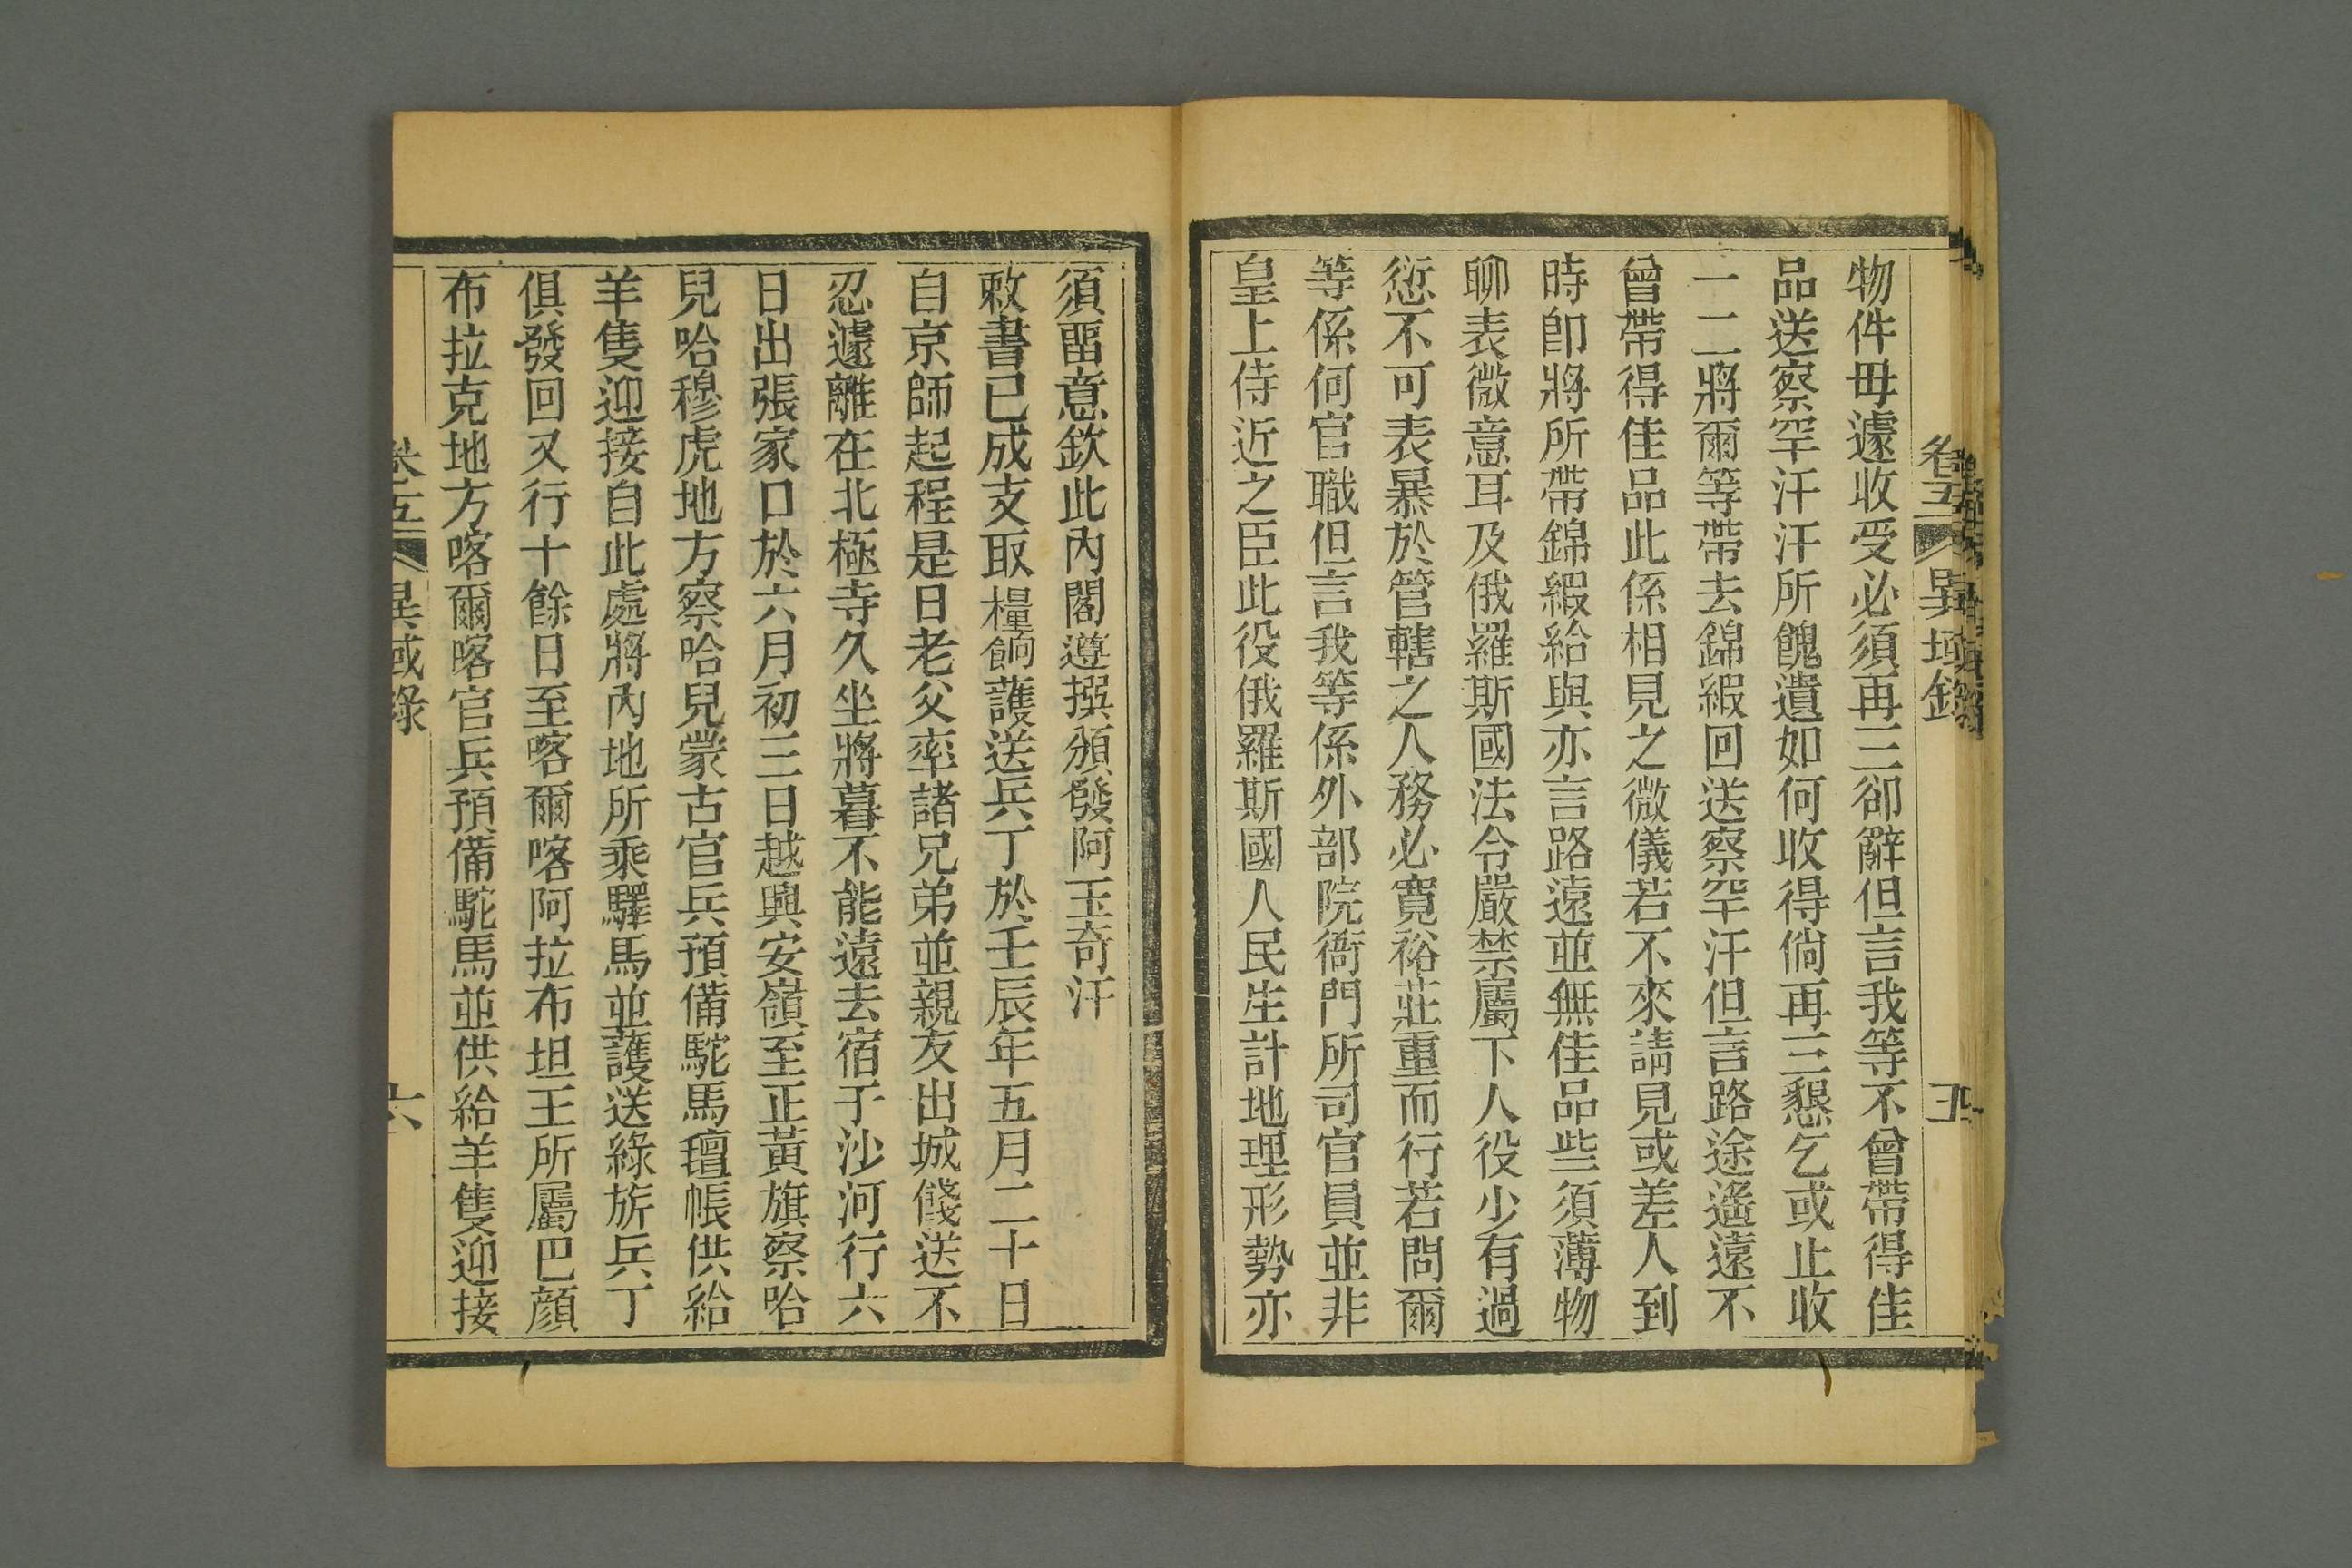 物件毋遽收受必須再三卻辭但言我等不曾帶得佳
品送察罕汗汗所餽遺如何收得倘再三懇乞或止收
一二將爾等帶去錦緞回送察罕汗但言路途遙遠不
曾帶得佳品此係相見之微儀若不來請見或差人到
時卽將所帶錦緞給與亦言路遠並無佳品些須薄物
聊表微意耳及俄羅斯國法令嚴禁屬下人役少有過
愆不可表暴於管轄之人務必寬裕莊重而行若問爾
等係何官職但言我等係外部院衙門所司官員並非
皇上侍近之臣此役俄羅斯國人民生計地理形勢亦
須畱意欽此內閣遵撰頒發阿玉奇汗
敕書已成支取糧餉護送兵丁於壬辰年五月二十日
自京師起程是日老父率諸兄弟並親友出城餞送不
忍遽離在北極寺久坐將暮不能遠去宿于沙河行六
日出張家口於六月初三日越興安嶺至正黃旗察哈
兒哈穆虎地方察哈兒蒙古官兵預備駝馬氊帳供給
羊隻迎接自此處將內地所乘驛馬並護送綠旂兵丁
俱發回又行十餘日至喀爾喀阿拉布坦王所屬巴顔
布拉克地方喀爾喀官兵預備駝馬並供給羊隻迎接
卷五 異域錄 六